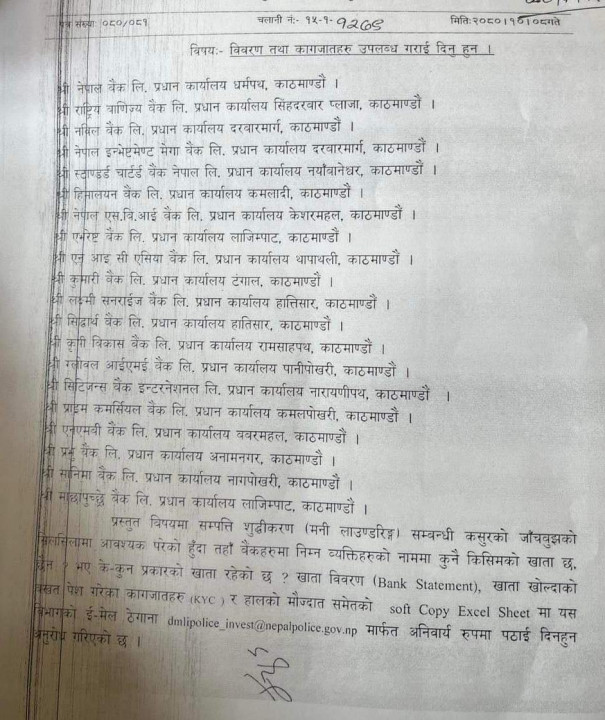 पत्र संख्याः ०८०/०८१ चलानी नं:- १५-१- मितिः२०८०।१०।०८गते
विषयः- विवरण तथा कागजातहरु उपलब्ध गराई दिनु हुन ।
श्री नेपाल बैंक लि. प्रधान कार्यालय धर्मपथ, काठमाण्डौं ।
श्री राष्ट्रिय वाणिज्य बैंक लि. प्रधान कार्यालय सिंहदरवार प्लाजा, काठमाण्डौं ।
श्री नविल बैंक लि. प्रधान कार्यालय दरवारमार्ग, काठमाण्डौं ।
श्री नेपाल इन्भेष्टमेण्ट मेगा बैंक लि. प्रधान कार्यालय दरवारमार्ग, काठमाण्डौं ।
श्री स्टाण्डर्ड चार्टर्ड बैंक नेपाल लि. प्रधान कार्यालय नयाँवानेश्वर, काठमाण्डौं ।
श्री हिमालयन बैंक लि. प्रधान कार्यालय कमलादी, काठमाण्डौं ।
श्री नेपाल एस.वि.आई बैंक लि. प्रधान कार्यालय केशरमहल, काठमाण्डौं ।
श्री एभरेष्ट बैंक लि. प्रधान कार्यालय लाजिम्पाट, काठमाण्डौं ।
श्री एन आइ सी एसिया बैंक लि. प्रधान कार्यालय थापाथली, काठमाण्डौं ।
श्री कुमारी बैंक लि. प्रधान कार्यालय टंगाल, काठमाण्डौं ।
श्री लक्ष्मी सनराईज बैंक लि. प्रधान कार्यालय हात्तिसार, काठमाण्डौं ।
श्री सिद्धार्थ बैंक लि. प्रधान कार्यालय हातिसार, काठमाण्डौं ।
श्री कृषी विकास बैंक लि. प्रधान कार्यालय रामसाहपथ, काठमाण्डौं ।
श्री ग्लोवल आईएमई बैंक लि. प्रधान कार्यालय पानीपोखरी, काठमाण्डौं ।
श्री सिटिजन्स बैंक इन्टरनेशनल लि. प्रधान कार्यालय नारायणीपथ, काठमाण्डौं ।
श्री प्राइम कमर्सियल बैंक लि. प्रधान कार्यालय कमलपोखरी, काठमाण्डौं ।
श्री एनएमवी बैंक लि. प्रधान कार्यालय ववरमहल, काठमाण्डौं ।
श्री प्रभु बैंक लि. प्रधान कार्यालय अनामनगर, काठमाण्डौं ।
श्री सानिमा बैंक लि. प्रधान कार्यालय नागपोखरी, काठमाण्डौं ।
श्री माछापुच्छ्रे बैंक लि. प्रधान कार्यालय लाजिम्पाट, काठमाण्डौं ।
प्रस्तुत विषयमा सम्पत्ति शुद्धीकरण (मनी लाउण्डरिङ्ग) सम्वन्धी कसुरको जाँचवुझको
सिलसिलामा आवश्यक परेको हुँदा तहाँ बैंकहरुमा निम्न व्यक्तिहरुको नाममा कुनै किसिमको खाता छ,
छैन ? भए के-कुन प्रकारको खाता रहेको छ ? खाता विवरण (Bank Statement), खाता खोल्दाको
वखत पेश गरेका कागजातहरु (KYC) र हालको मौज्दात समेतको soft Copy Excel Sheet मा यस
विभागको ई-मेल ठेगाना dmlipolice_invest@nepalpolice.gov.np मार्फत अनिवार्य रुपमा पठाई दिनहुन
अनुरोध गरिएको छ ।